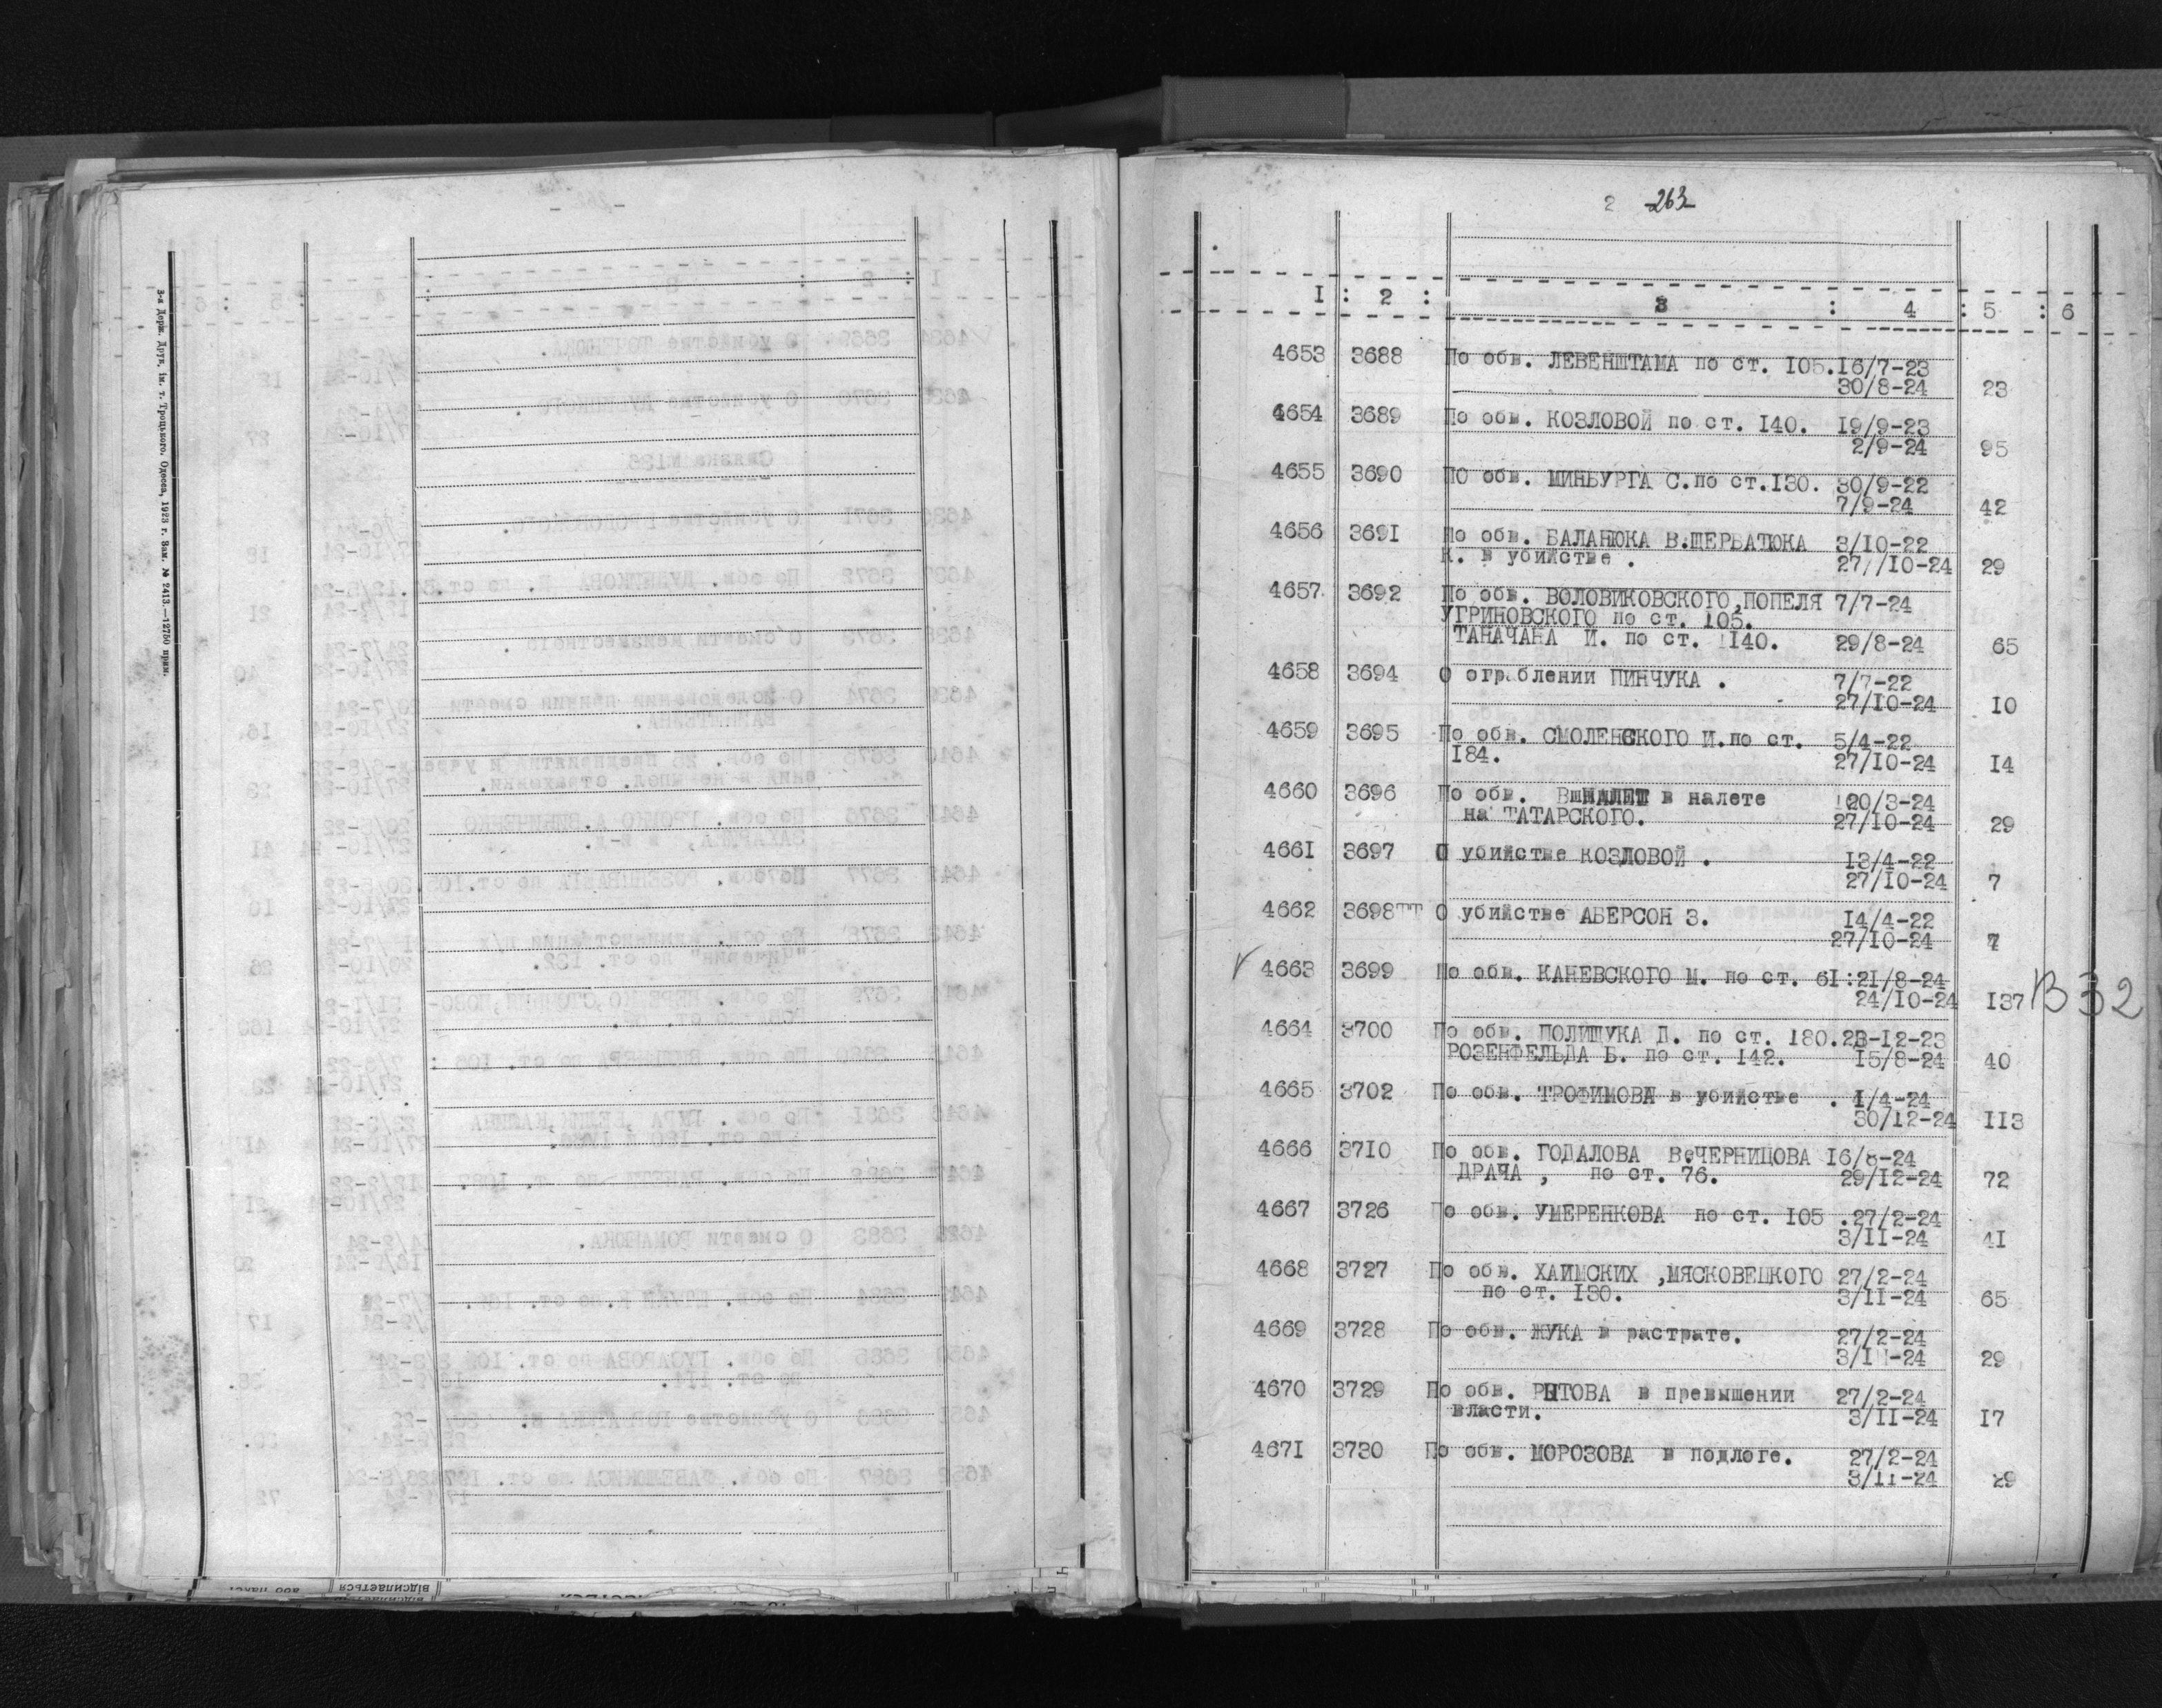 3-я Держ. Друк. ім. т. Троцького. Одесса, 1923 г. Зам. № 2413.—12750 прим.
2 -263-
I : 2 : 3 : 4 : 5 : 6
4653 3688 По обв. ЛЕВЕНШТАМА по ст. I05. I6/7-23
30/8-24 23
4654 3689 По обв. КОЗЛОВОЙ по ст. I40. I9/9-23
2/9-24 95
4655 3690 ПО обв. МИНБУРГА С.по ст.I30. 30/9-22
7/9-24 42
4656 369I По обв. БАЛАНЮКА В.ЩЕРБАТЮКА 3/I0-22
К. в убийстве . 27//I0-24 29
4657 3692 По обв. ВОЛОВИКОВСКОГО,ПОПЕЛЯ 7/7-24
УГРИНОВСКОГО по ст. I05.
ТАНАЧАНА И. по ст. I40. 29/8-24 65
4658 3694 О ограблении ПИНЧУКА . 7/7-22
27/I0-24 I0
4659 3695 По обв. СМОЛЕНСКОГО И.по ст. 5/4-22
I84. 27/I0-24 I4
4660 3696 По обв. в налете 20/3-24
на ТАТАРСКОГО. 27/I0-24 29
466I 3697 О убийстве КОЗЛОВОЙ . I3/4-22
27/I0-24 7
4662 3698ТТ О убийстве АБЕРСОН З. I4/4-22
27/I0-24 7
√ 4663 3699 По обв. КАНЕВСКОГО М. по ст. 6I:2I/8-24
24/I0-24 I37 В 32
4664 3700 По обв. ПОЛИЩУКА Д. по ст. I80.23-I2-23
РОЗЕНФЕЛЬДА Б. по ст. I42. I5/8-24 40
4665 3702 По обв. ТРОФИМОВА в убийстве . I/4-24
30/I2-24 II3
4666 37I0 По обв. ГОДАЛОВА ВеЧЕРНИЦОВА I6/8-24
ДРАЧА , по ст. 76. 29/I2-24 72
4667 3726 По обв. УМЕРЕНКОВА по ст. I05 .27/2-24
3/II-24 4I
4668 3727 По обв. ХАИМСКИХ ,МЯСКОВЕЦКОГО 27/2-24
по ст. I30. 3/II-24 65
4669 3728 По обв. ЖУКА в растрате. 27/2-24
3/II-24 29
4670 3729 По обв. в превышении 27/2-24
власти. 3/II-24 I7
467I 3730 По обв. МОРОЗОВА в подлоге. 27/2-24
3/II-24 29